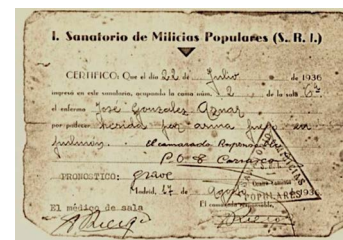 I. Sanatorio de Milicias Populares (S. R. I.)
CERTIFICO: Que el día 22 de Julio de 1936
ingresó en este sanatorio, ocupando la cama núm. 2 de la sala 6ª
el enfermo José Gonzales Aznar
por padecer heridas por arma fuego en
pulmón. El camarada Responsable
P.O.S Carrasco
PRONOSTICO: grave
Madrid, 17 de Agosto 1936
El médico de sala El camarada responsable,
MILICIAS
POPULARES